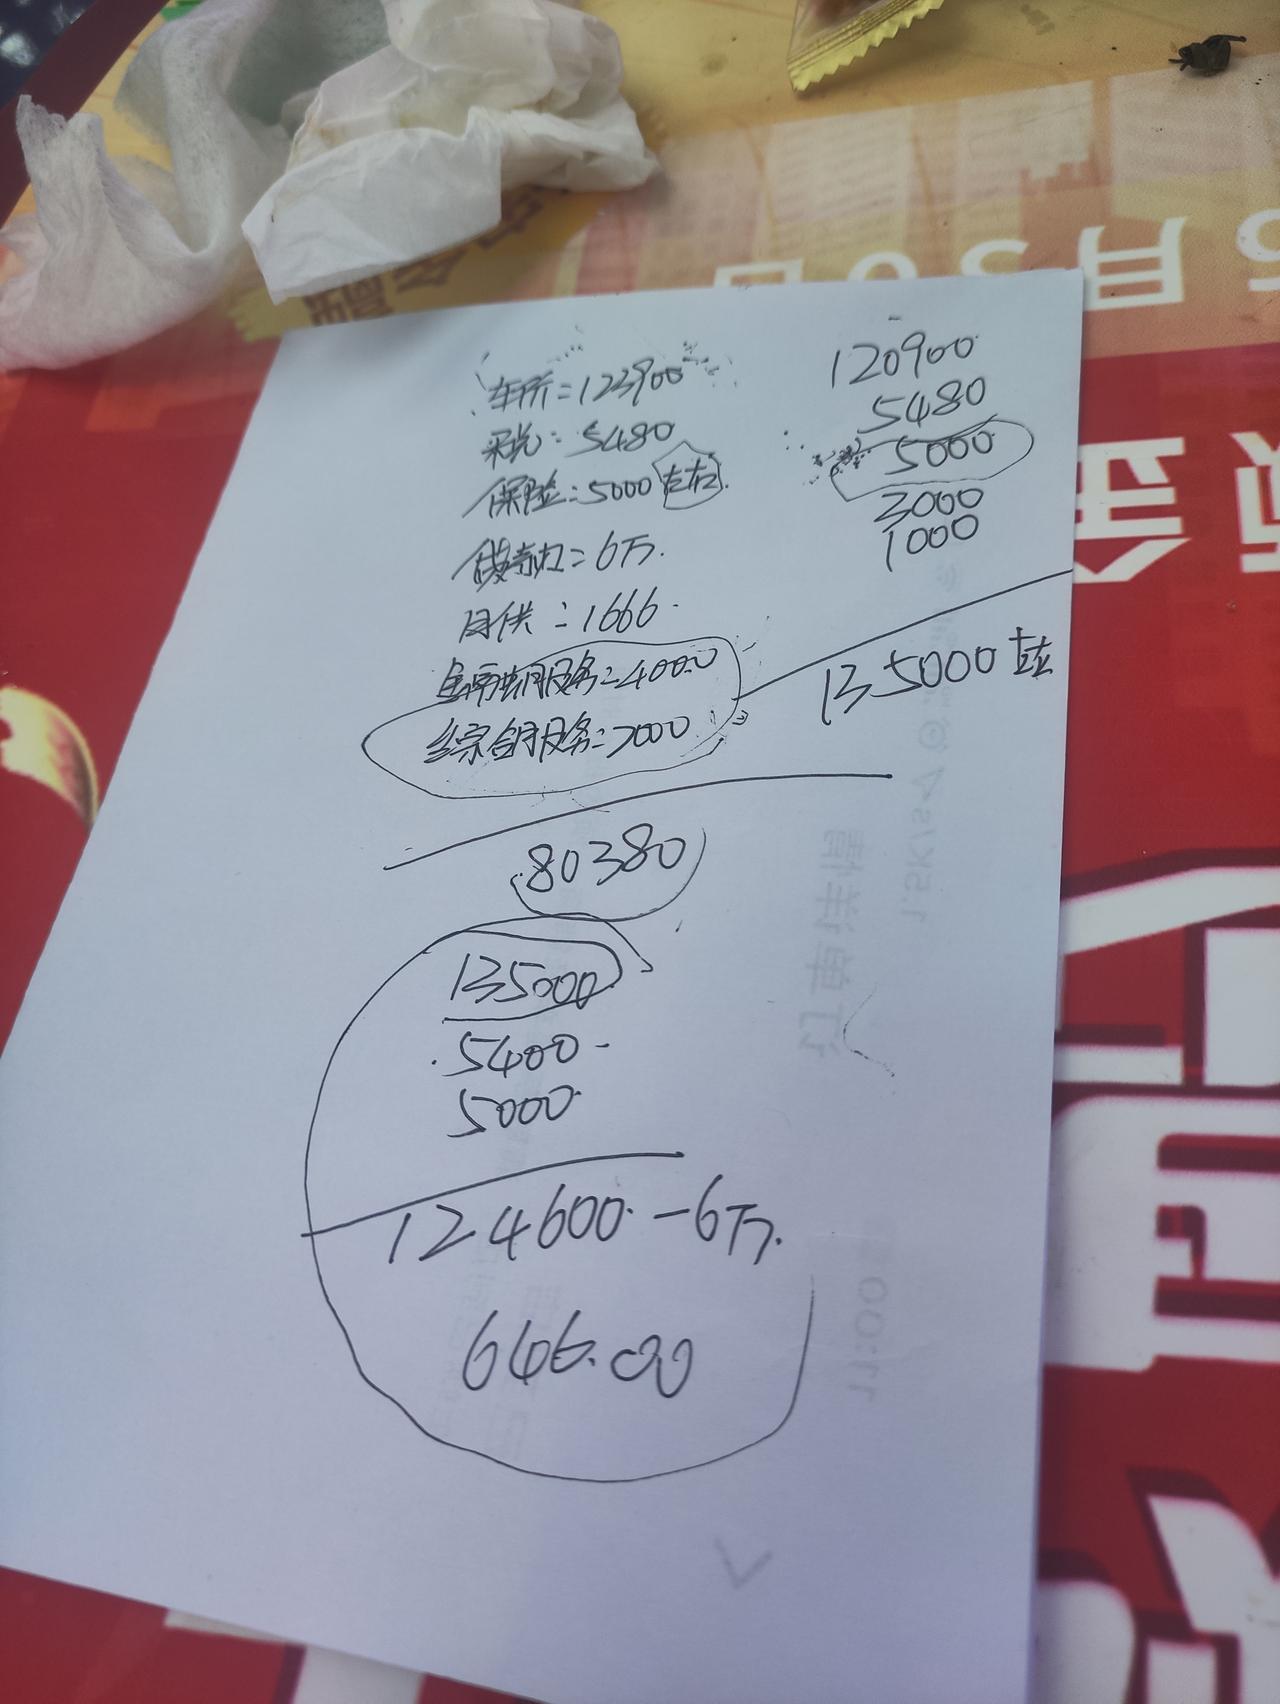 车价=123900
采税:5480
保险:5000左右
贷款=6万.
月供=1666.
金融服务=4000
综合服务=2000
80380
135000
5400-
5000
124600-6万.
646.00
120900
5480
5000
3000
1000
135000左右
6月30日
订单详情
11:00
1.5K/s